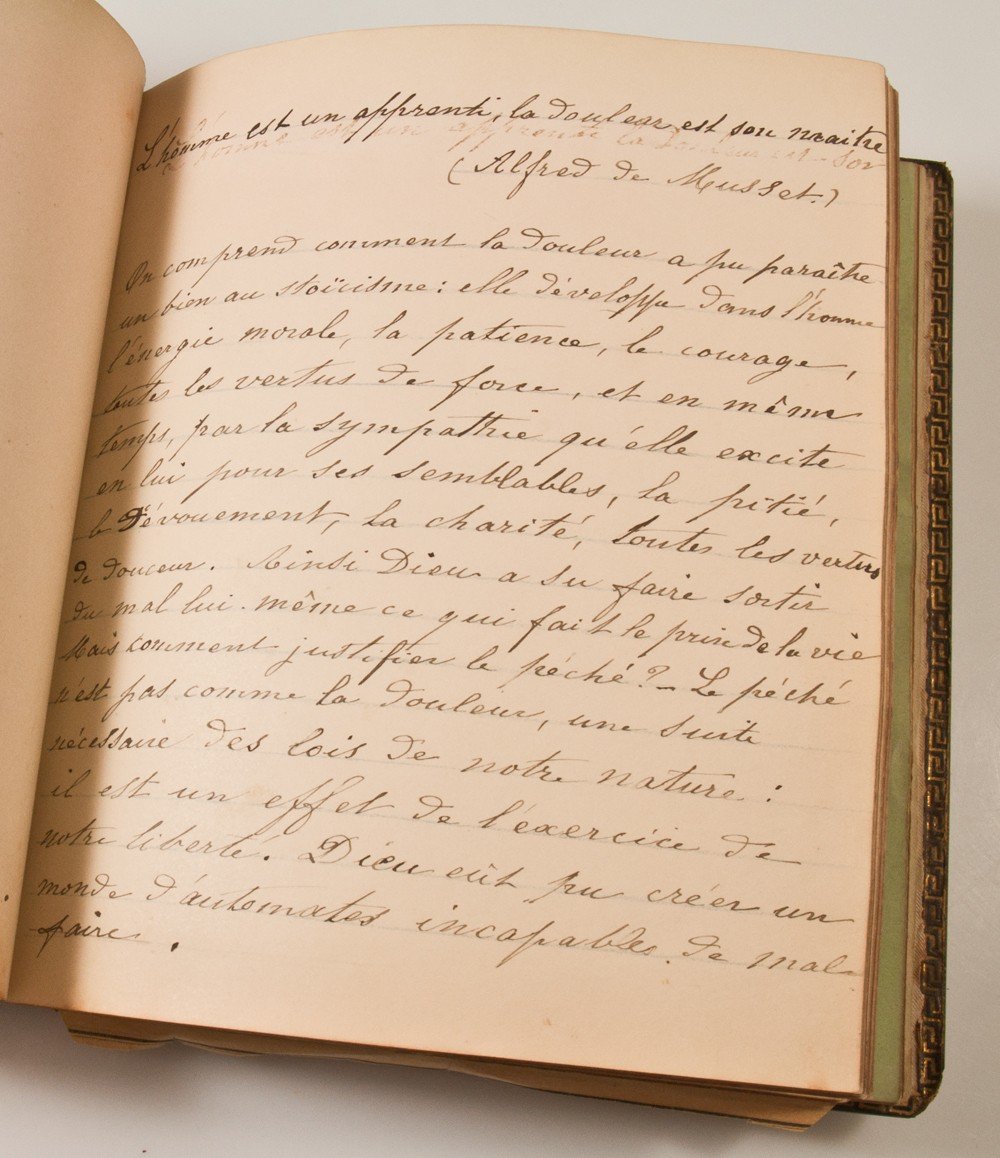 L'homme est un apprenti, la douleur est son maitre
(Alfred de Musset.)
On comprend comment la douleur a pu paraître
un bien au stoïcisme: elle développe dans l'homme
l'énergie morale, la patience, le courage,
toutes les vertus de force, et en même
temps, par la sympathie qu'elle excite
en lui pour ses semblables, la pitié,
le dévouement, la charité, toutes les vertus
de douceur. Ainsi Dieu a su faire sortir
du mal lui-même ce qui fait le prix de la vie
Mais comment justifier le péché? - Le péché
n'est pas comme la douleur, une suite
nécessaire des lois de notre nature:
il est un effet de l'exercice de
notre liberté. Dieu eût pu créer un
monde d'automates incapables de mal
faire.